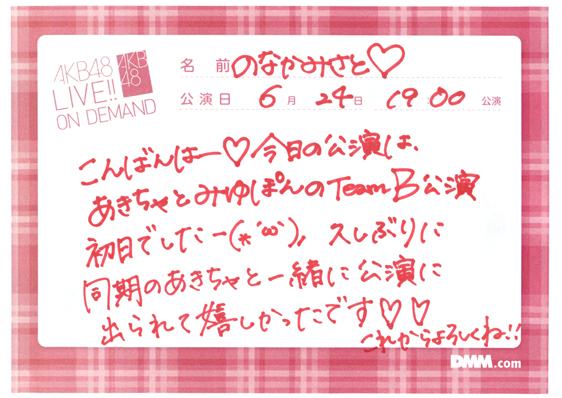 AKB48
LIVE!!
ON DEMAND
AKB
48
名 前 のなかみさと♡
公演日 6月 24日 19:00 公演
こんばんはー♡今日の公演は、
あきちゃとみゆぽんのTeam B公演
初日でしたー(*´ω`)，久しぶりに
同期のあきちゃと一緒に公演に
出られて嬉しかったです♡♡
これからよろしくね!!
DMM.com